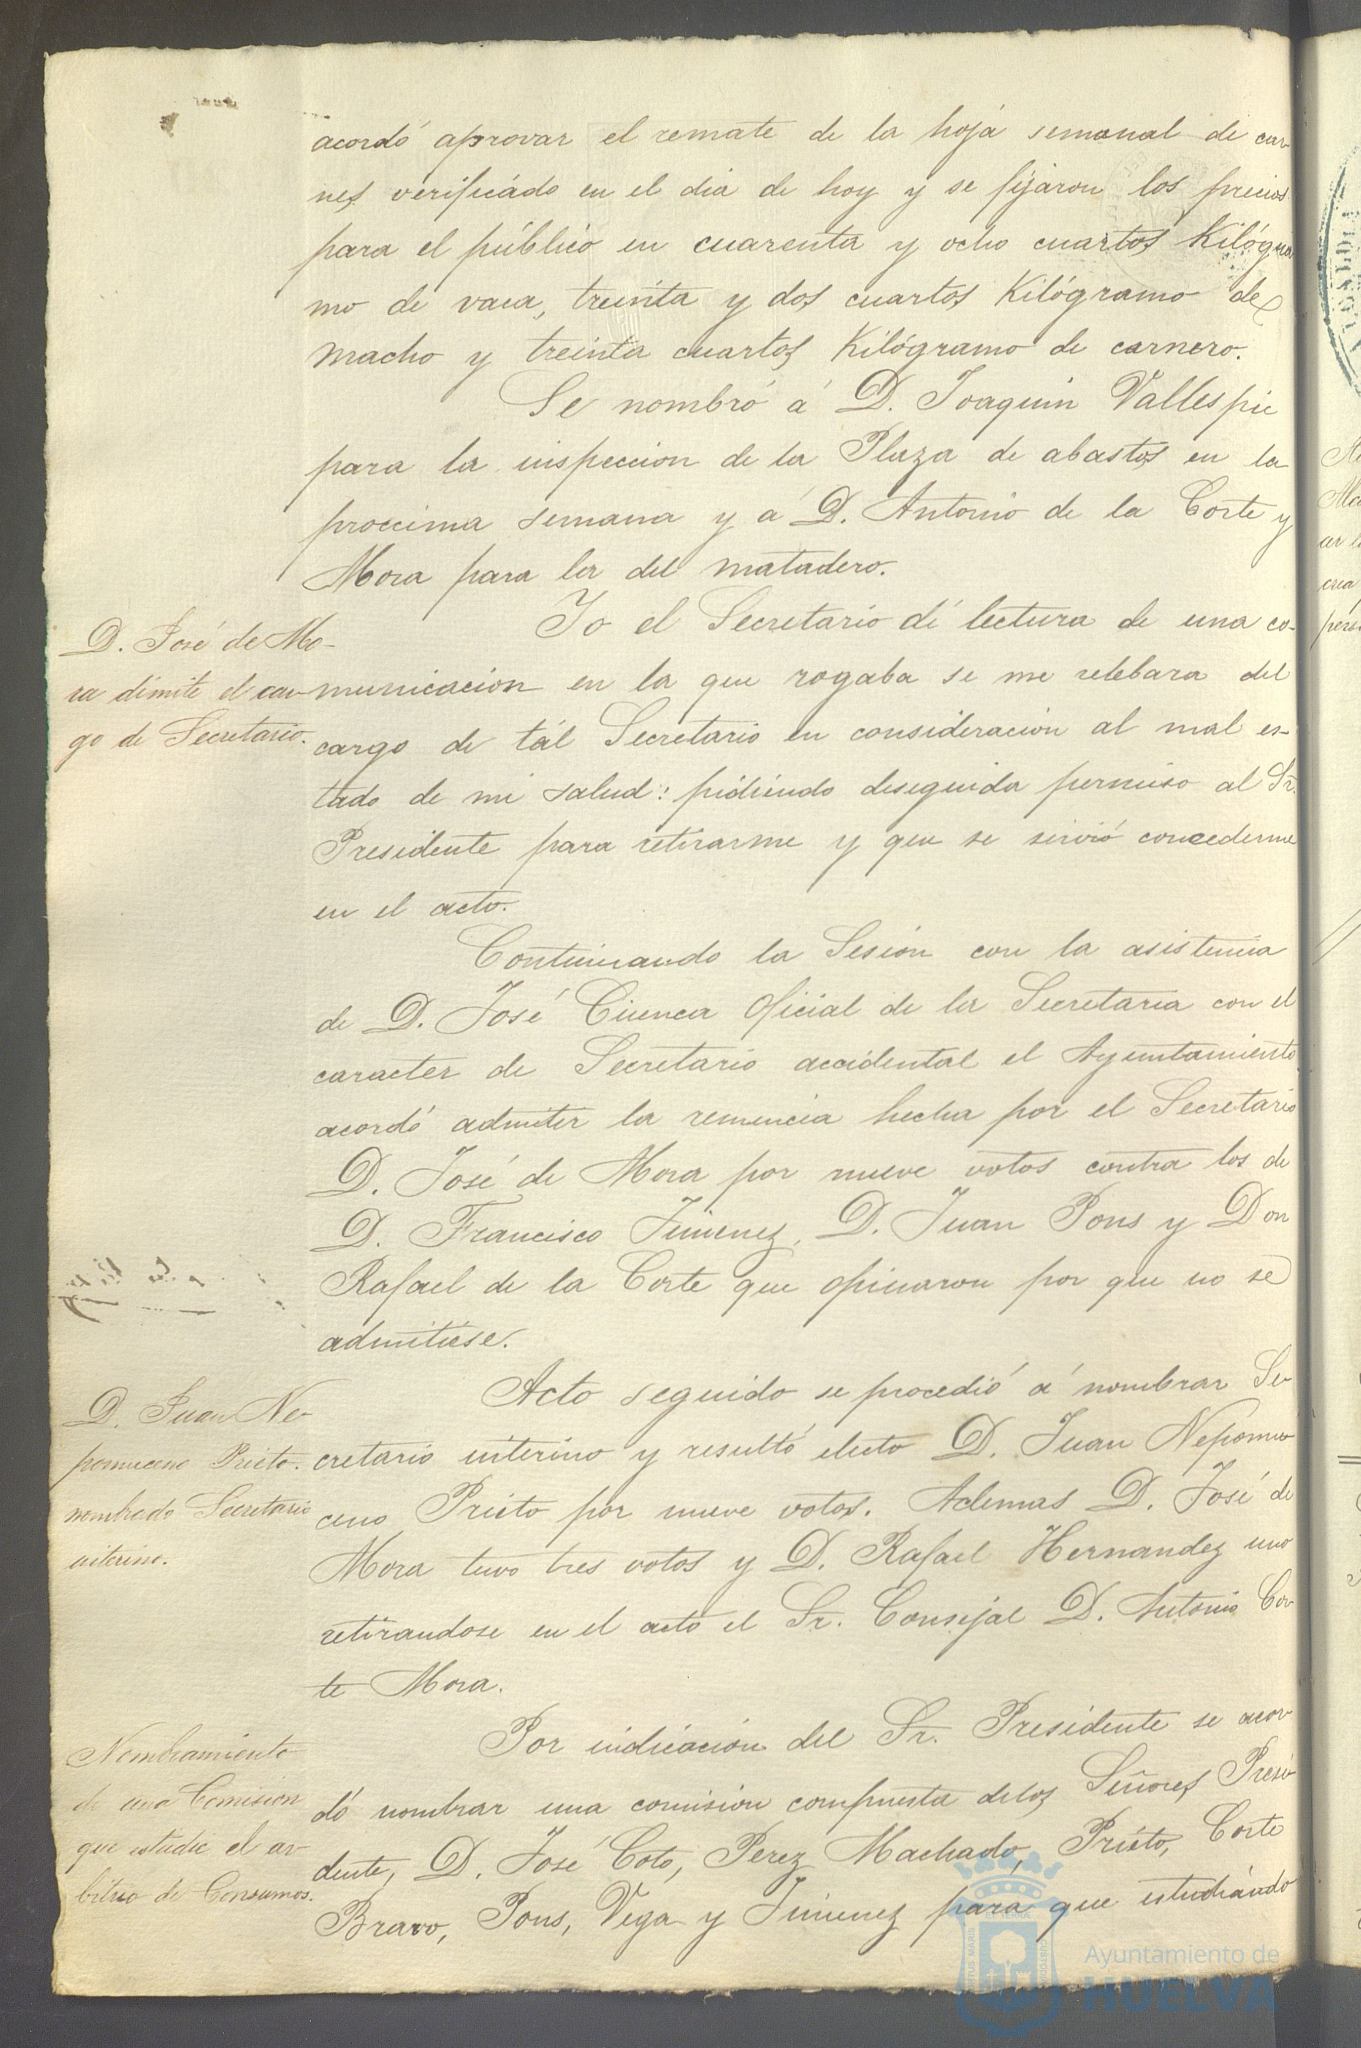 acordó aprovar el remate de la hoja semanal de car-
nes verificado en el dia de hoy y se fijaron los precios
para el público en cuarenta y ocho cuartos Kilógra
mo de vaca, treinta y dos cuartos Kilógramo de
macho y treinta cuartos Kilógramo de carnero.
Se nombró á D. Joaquin Vallespir
para la inspeccion de la Plaza de abastos en la
proccima semana y á D. Antonio de la Corte y
Mora para la del matadero.
D. José de Mo-
ra dimite el car-
go de Secretario.
Yo el Secretario dí lectura de una co-
municacion en la que rogaba se me relebara del
cargo de tál Secretario en consideracion al mal es-
tado de mi salud: pidiendo deseguida permiso al Sr.
Presidente para retirarme y que se sirvió concederme
en el acto.
Continuando la Sesión con la asistencia
de D. José Cuenca Oficial de la Secretaria con el
caracter de Secretario accidental el Ayuntamiento
acordó admitir la renuncia hecha por el Secretario
D. José de Mora por nueve votos contra los de
D. Francisco Jimenez, D. Juan Pons y Don
Rafael de la Corte que opinaron por que no se
admitiese.
D. Juan Ne-
pomuceno Prieto.
nombrado Secretario
interino.
Acto seguido se procedió á nombrar Se-
cretario interino y resultó electo D. Juan Nepomu-
ceno Prieto por nueve votos. Ademas D. José de
Mora tuvo tres votos y D. Rafael Hernandez uno
retirandose en el acto el Sr. Consejal D. Antonio Cor-
te Mora.
Nombramiento
de una Comision
que estudie el ar-
bitrio de Consumos.
Por indicacion del Sr. Presidente se acor-
dó nombrar una comision compuesta delos Señores Presi-
dente, D. José Coto, Perez Machado, Prieto, Corte
Bravo, Pons, Vega y Jimenez para que estudiándo
Ayuntamiento de
HUELVA